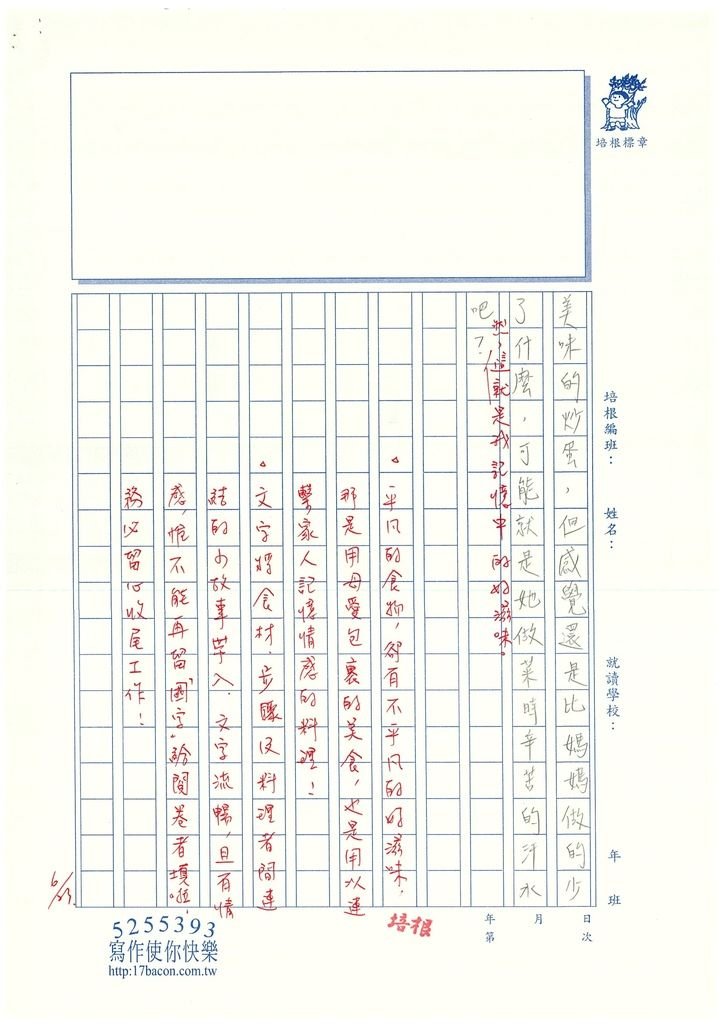 培根標章
培根編班：　姓名：　就讀學校：　年　班
美味的炒蛋，但感覺還是比媽媽做的少
了什麼，可能就是她做菜時辛苦的汗水
吧？
這就是我記憶中的好滋味。
▵平凡的食物，卻有不平凡的好滋味，
那是用母愛包裹的美食，也是用以連
繫家人記憶情感的料理！
▵文字將食材、步驟及料理者間連
結的小故事帶入，文字流暢，且有情
感，惟不能再留"國字"給閱卷者填啦！
務必留心收尾工作！
年　月　日
第　次
培根
5255393
寫作使你快樂
http:17bacon.com.tw